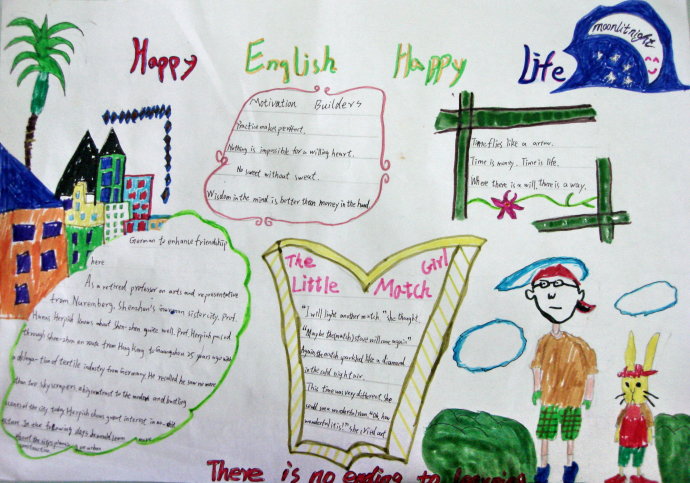 Happy English Happy Life
moonlitnight
Motivation Builders
Practice makes perfect.
Nothing is impossible for a willing heart.
No sweet without sweat.
Wisdom in the mind is better than money in the hand
Time flies like a arrow.
Time is money. Time is life.
Where there is a will, There is a way.
German to enhance friendship
here
As a retired professor on arts and representative
from Nuremberg, Shenzhen's sister city, Prof.
Hans Herpich knows about Shen-zhen quite well. Prof. Herpich passed
through Shen-zhen en route from Hong Kong to Guangzhou 25 years ago with
a delegation of textile industry from Germany. He recalled he saw no more
than two skyscrapers, a big contrast to the modern and bustling
scene of the city today. Herpich shows great interest in
In the following days he would learn more
about the city's planning on urban
construction
The Little Match Girl
"I will light another match" she thought.
"Maybe the (match) stove will come again"
Again the match sparkled like a diamond
in the cold night air.
This time was very different. She
could see a wonderful room "Oh, how
wonderful it is!" she cried out
There is no ending to learning